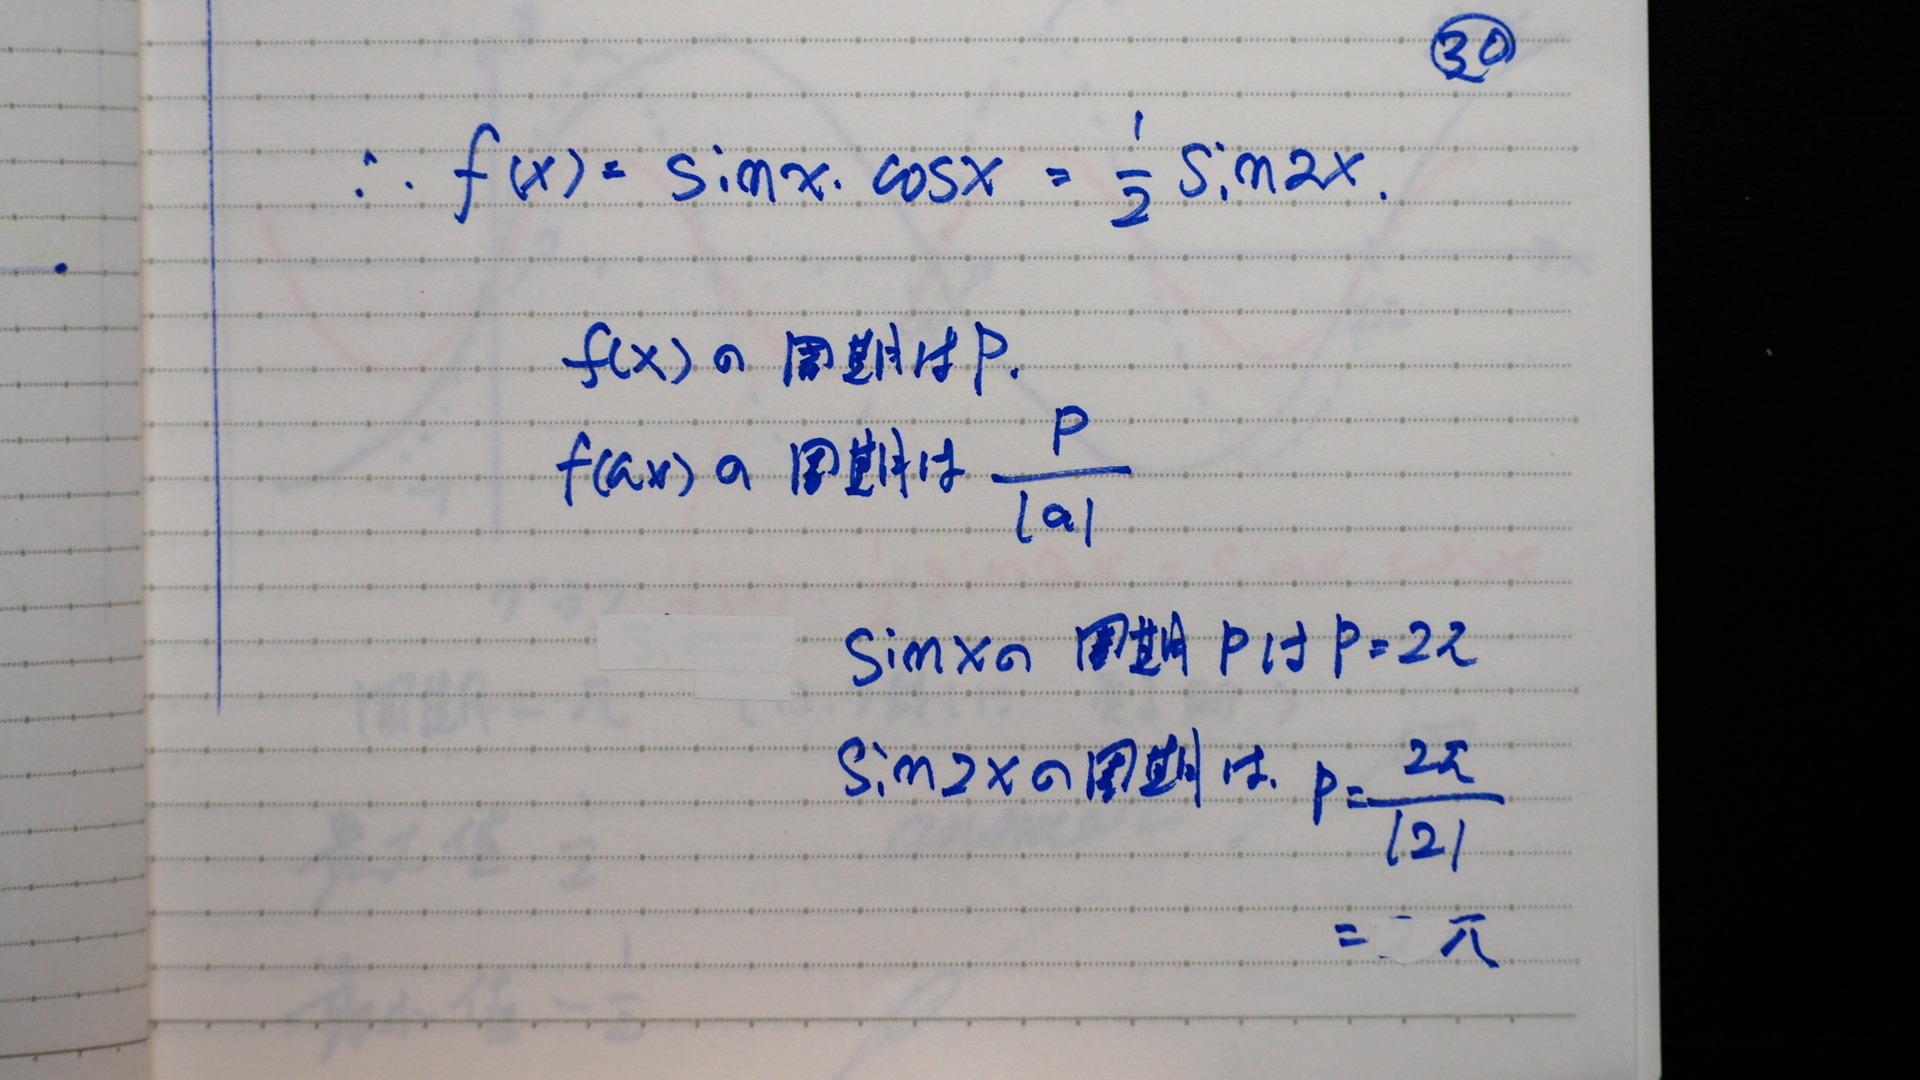 ㉚
∴ f(x) = sinx・cosx = 1/2 sin2x.
f(x)の周期はP.
f(ax)の周期は P/|a|
sinxの周期PはP=2π
sin2xの周期は. P= 2π/|2|
= π